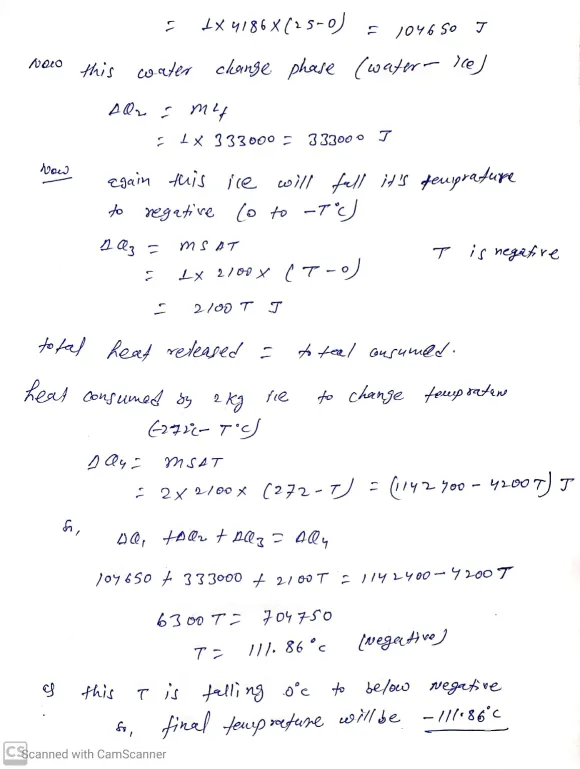 = 1 x 4186 x (25-0) = 104650 J
Now this water change phase (water - ice)
ΔQ₂ = mLf
= 1 x 333000 = 333000 J
Now again this ice will fall it's temprature
to negative (0 to -T°C)
ΔQ₃ = msΔT T is negative
= 1 x 2100 x (T-0)
= 2100 T J
total heat released = total consumed.
heat consumed by 2 kg ice to change temprature
(-272°C - T°C)
ΔQ₄ = msΔT
= 2 x 2100 x (272-T) = (1142400 - 4200T) J
So, ΔQ₁ + ΔQ₂ + ΔQ₃ = ΔQ₄
104650 + 333000 + 2100T = 1142400 - 4200T
6300 T = 704750
T = 111.86°C (negative)
of this T is falling 0°C to below negative
So, final temprature will be -111.86°C
CS Scanned with CamScanner